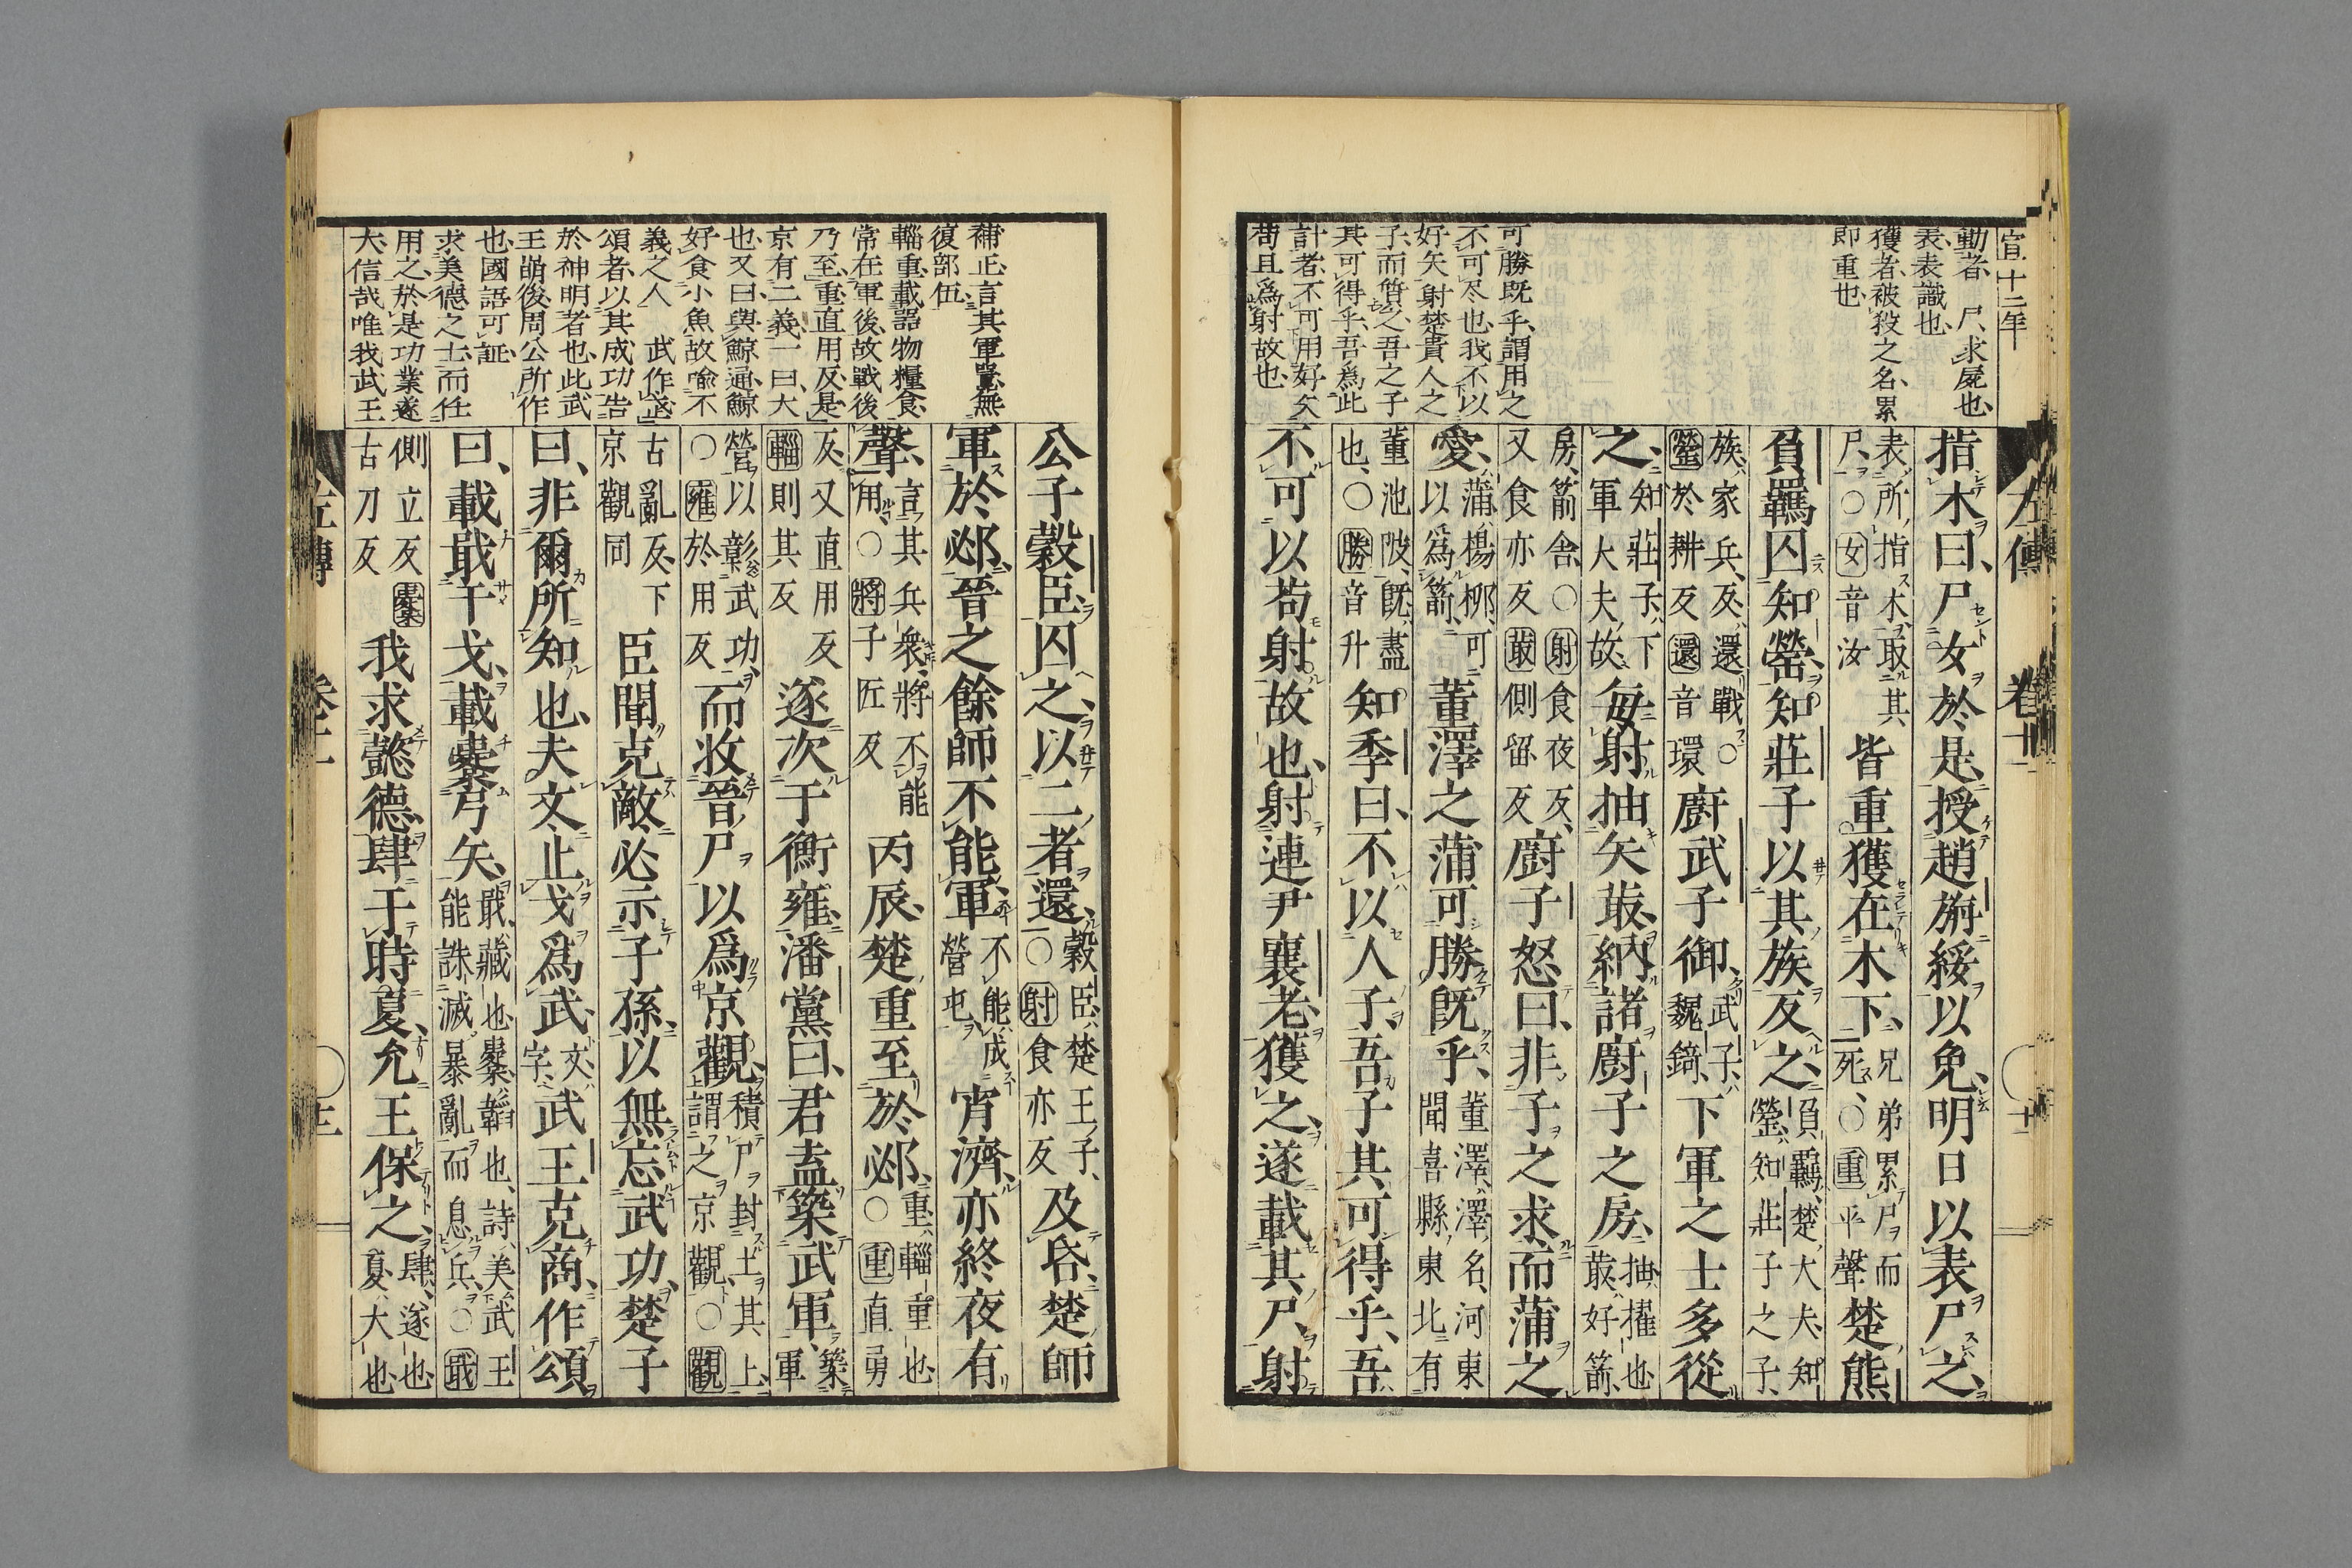 宣十二年
動者 尸、求屍也、
表、表識也、
獲者、被殺之名、累
即重也
可勝既乎、謂用之
不可尽也、我不以
好矢射楚貴人之
子、而質之、吾之子
其可得乎、吾爲此
計者、不可用好矢
苟且爲射故也、
左傳 卷十一 十二
指木曰、尸女於是、授趙旃綏以免、明日以表尸之、
表所指木、取其尸、○女音汝皆重獲在木下、兄弟累尸而死、○重平聲楚熊
負羈囚知罃、知莊子以其族反之、負羈、楚大夫、知罃、知莊子之子、
族、家兵、反、還戰○罃於耕反還音環廚武子御、武子、魏錡、下軍之士多從
之、知莊子、下軍大夫、故每射抽矢菆、納諸廚子之房、抽、擢也、菆、好箭、
房、箭舍、○射食夜反、又食亦反菆側留反廚子怒曰、非子之求、而蒲之
愛、蒲、楊柳、可以爲箭、董澤之蒲可勝既乎、董澤、澤名、河東聞喜縣東北有
董池陂、既、盡也、○勝音升知季曰、不以人子、吾子其可得乎、吾
不可以苟射故也、射連尹襄老、獲之、遂載其尸、射
補正、言其軍囂無
復部伍、
輜重、載器物糧食、
常在軍後、故戰後
乃至、重直用反、是
京有二義、一曰、大
也、又曰、與鯨通、鯨
好食小魚、故喩不
義之人 武作、誌
頌者、以其成功告
於神明者也、此武
王崩後、周公所作
也、國語可証、
求美德之士、而任
用之、於是功業遂
大、信哉唯我武王
公子穀臣、囚之、以二者還、穀臣、楚王子、○射食亦反及昏、楚師
軍於邲、晉之餘師不能軍、不能成營屯、宵濟、亦終夜有
聲、言其兵衆、將不能用、○將子匠反丙辰、楚重至於邲、重、輜重也、○重直勇
反、又直用反輜則其反遂次于衡雍、潘黨曰、君盍築武軍、築軍
營以彰武功、○雍於用反而收晉尸以爲京觀、積尸封土其上、謂之京觀、○觀
古亂反、下京觀同臣聞克敵必示子孫、以無忘武功、楚子
曰、非爾所知也、夫文、止戈爲武、文、字、武王克商、作頌
曰、載戢干戈、載櫜弓矢、戢、藏也、櫜、韜也、詩美武王能誅滅暴亂而息兵、○戢
側立反櫜古刀反我求懿德、肆于時夏、允王保之、肆、遂也、夏、大也、
左傳 卷十一 十三